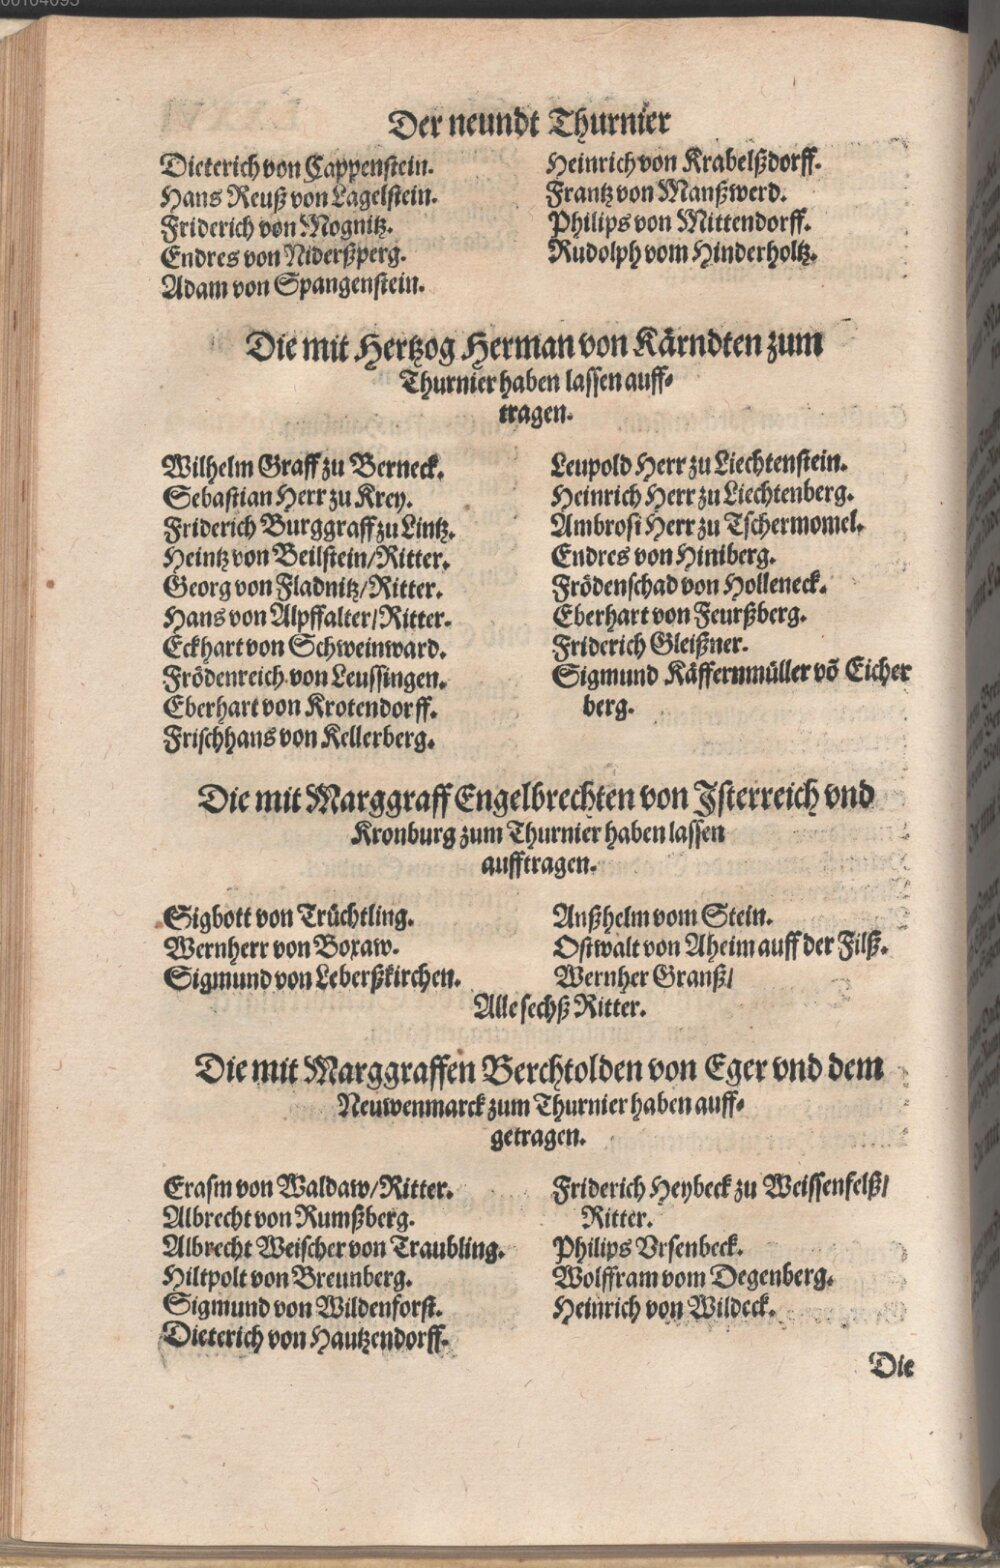 Der neundt Thurnier
Dieterich von Cappenstein.
Hans Reuß von Lagelstein.
Friderich von Mognitz.
Endres von Niderßperg.
Adam von Spangenstein.
Heinrich von Krabelßdorff.
Frantz von Manßwerd.
Philips von Mittendorff.
Rudolph vom Hinderholtz.
Die mit Hertzog Herman von Kärndten zum
Thurnier haben lassen auff⸗
tragen.
Wilhelm Graff zu Berneck.
Sebastian Herr zu Krey.
Friderich Burggraff zu Lintz.
Heintz von Beilstein/Ritter.
Georg von Fladnitz/Ritter.
Hans von Alpffalter/Ritter.
Eckhart von Schweinward.
Frödenreich von Leussingen.
Eberhart von Krotendorff.
Frischhans von Kellerberg.
Leupold Herr zu Liechtenstein.
Heinrich Herr zu Liechtenberg.
Ambrosi Herr zu Tschermomel.
Endres von Hiniberg.
Frödenschad von Holleneck.
Eberhart von Feurßberg.
Friderich Gleißner.
Sigmund Käffernmüller võ Eicher
berg.
Die mit Marggraff Engelbrechten von Isterreich vnd
Kronburg zum Thurnier haben lassen
aufftragen.
Sigbott von Trüchtling.
Wernherr von Boxaw.
Sigmund von Leberßkirchen.
Anßhelm vom Stein.
Ostwalt von Aheim auff der Filß.
Wernher Granß/
Alle sechß Ritter.
Die mit Marggraffen Berchtolden von Eger vnd dem
Neuwenmarck zum Thurnier haben auff⸗
getragen.
Erasm von Waldaw/Ritter.
Albrecht von Rumßberg.
Albrecht Weischer von Traubling.
Hiltpolt von Breunberg.
Sigmund von Wildenforst.
Dieterich von Hautzendorff.
Friderich Heybeck zu Weissenfelß/
Ritter.
Philips Vrsenbeck.
Wolffram vom Degenberg.
Heinrich von Wildeck.
Die